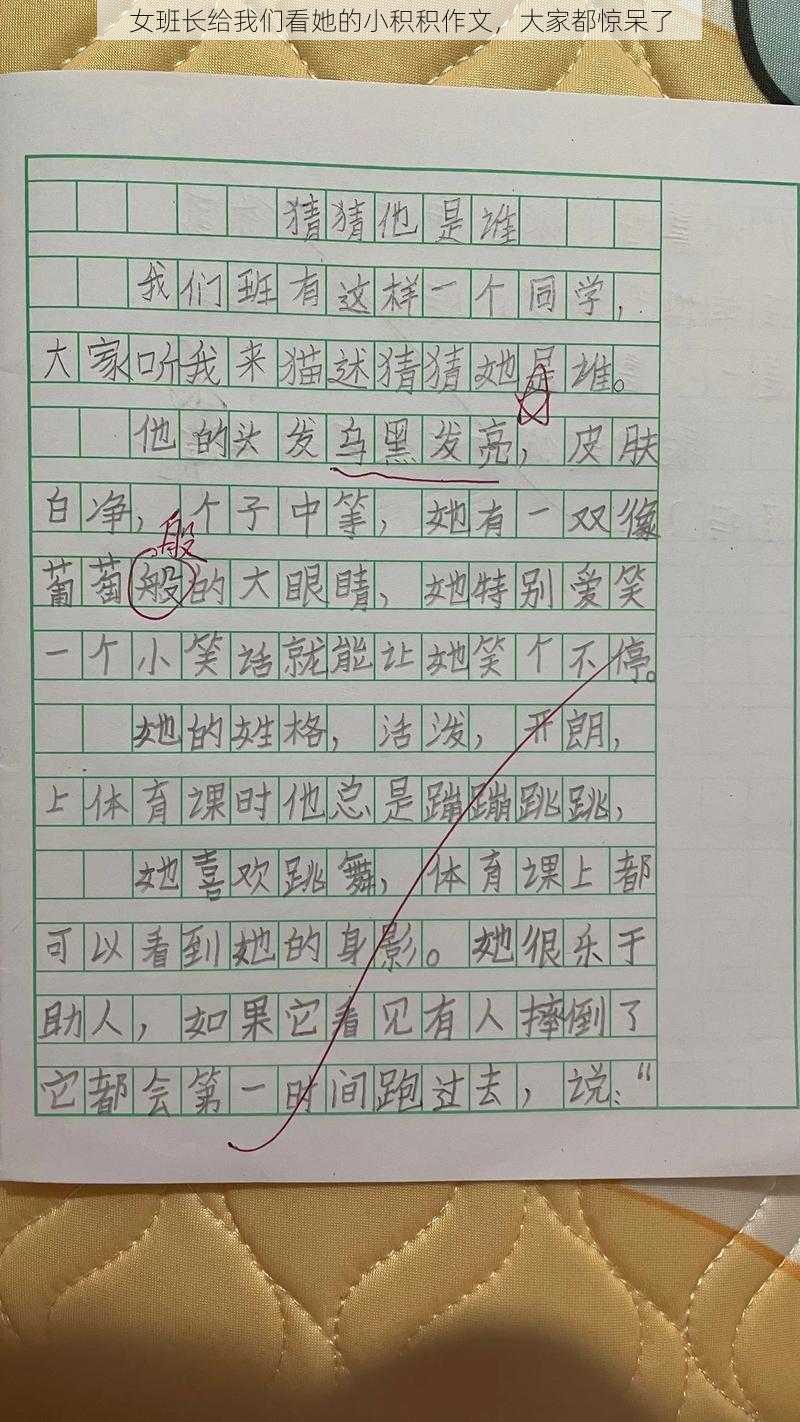 女班长给我们看她的小积积作文，大家都惊呆了
猜猜他是谁
我们班有这样一个同学，
大家听我来猫述猜猜她是谁。
他的头发乌黑发亮，皮肤
白净，个子中等，她有一双像
般
葡萄般的大眼睛，她特别爱笑
一个小笑话就能让她笑个不停。
她的姓格，活泼，开朗，
上体育课时他总是蹦蹦跳跳，
她喜欢跳舞，体育课上都
可以看到她的身影。她很乐于
助人，如果它看见有人摔倒了
它都会第一时间跑过去，说：“